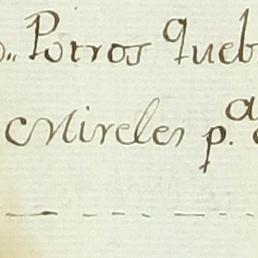 Potros Queb
Mireles p.a